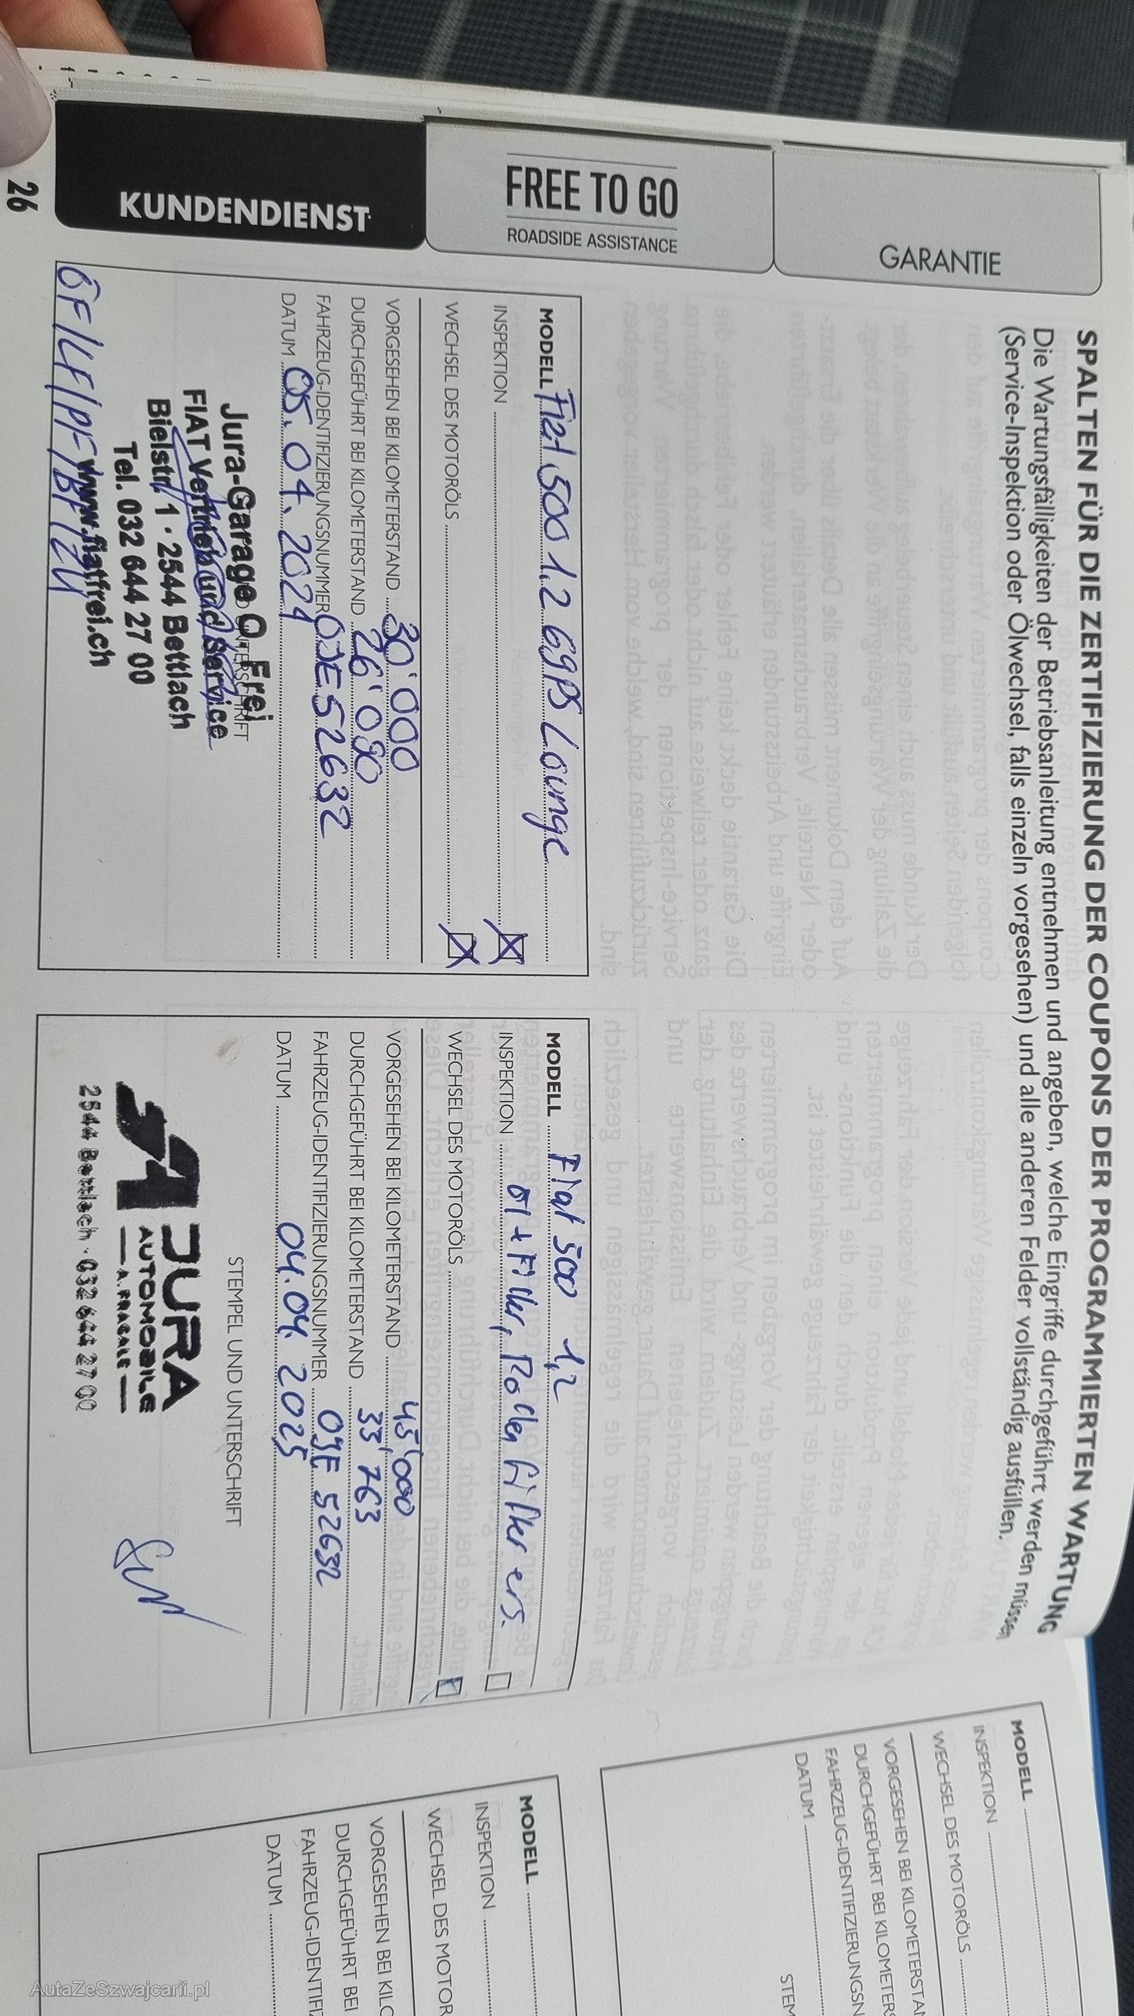 GARANTIE
FREE TO GO
ROADSIDE ASSISTANCE
KUNDENDIENST
26
SPALTEN FÜR DIE ZERTIFIZIERUNG DER COUPONS DER PROGRAMMIERTEN WARTUNG
Die Wartungsfälligkeiten der Betriebsanleitung entnehmen und angeben, welche Eingriffe durchgeführt werden müssen
(Service-Inspektion oder Ölwechsel, falls einzeln vorgesehen) und alle anderen Felder vollständig ausfüllen.
MODELL Fiat 500 1.2 69PS Lounge
INSPEKTION
WECHSEL DES MOTORÖLS
VORGESEHEN BEI KILOMETERSTAND 30'000
DURCHGEFÜHRT BEI KILOMETERSTAND 26'090
FAHRZEUG-IDENTIFIZIERUNGSNUMMER 0JE52632
DATUM 05.04.2024
Jura-Garage O. Frei
FIAT Vertrieb und Service
Bielstr. 1 · 2544 Bettlach
Tel. 032 644 27 00
www.fiatfrei.ch
ÖF/LF/PF/BF/ZU
MODELL Fiat 500 1,2
INSPEKTION öl + Filter, Pollenfilter ers.
WECHSEL DES MOTORÖLS
VORGESEHEN BEI KILOMETERSTAND 45'000
DURCHGEFÜHRT BEI KILOMETERSTAND 33'763
FAHRZEUG-IDENTIFIZIERUNGSNUMMER 0JE 52632
DATUM 04.04.2025
STEMPEL UND UNTERSCHRIFT
JURA
AUTOMOBILE
A. FRAGALE
2544 Bettlach · 032 644 27 00
MODELL
INSPEKTION
WECHSEL DES MOTORÖLS
VORGESEHEN BEI KILOMETERSTA
DURCHGEFÜHRT BEI KILOMETERS
FAHRZEUG-IDENTIFIZIERUNGSN
DATUM
STEM
MODELL
INSPEKTION
WECHSEL DES MOTOR
VORGESEHEN BEI KILO
DURCHGEFÜHRT BEI
FAHRZEUG-IDENTIFI
DATUM
AutaZeSzwajcarii.pl